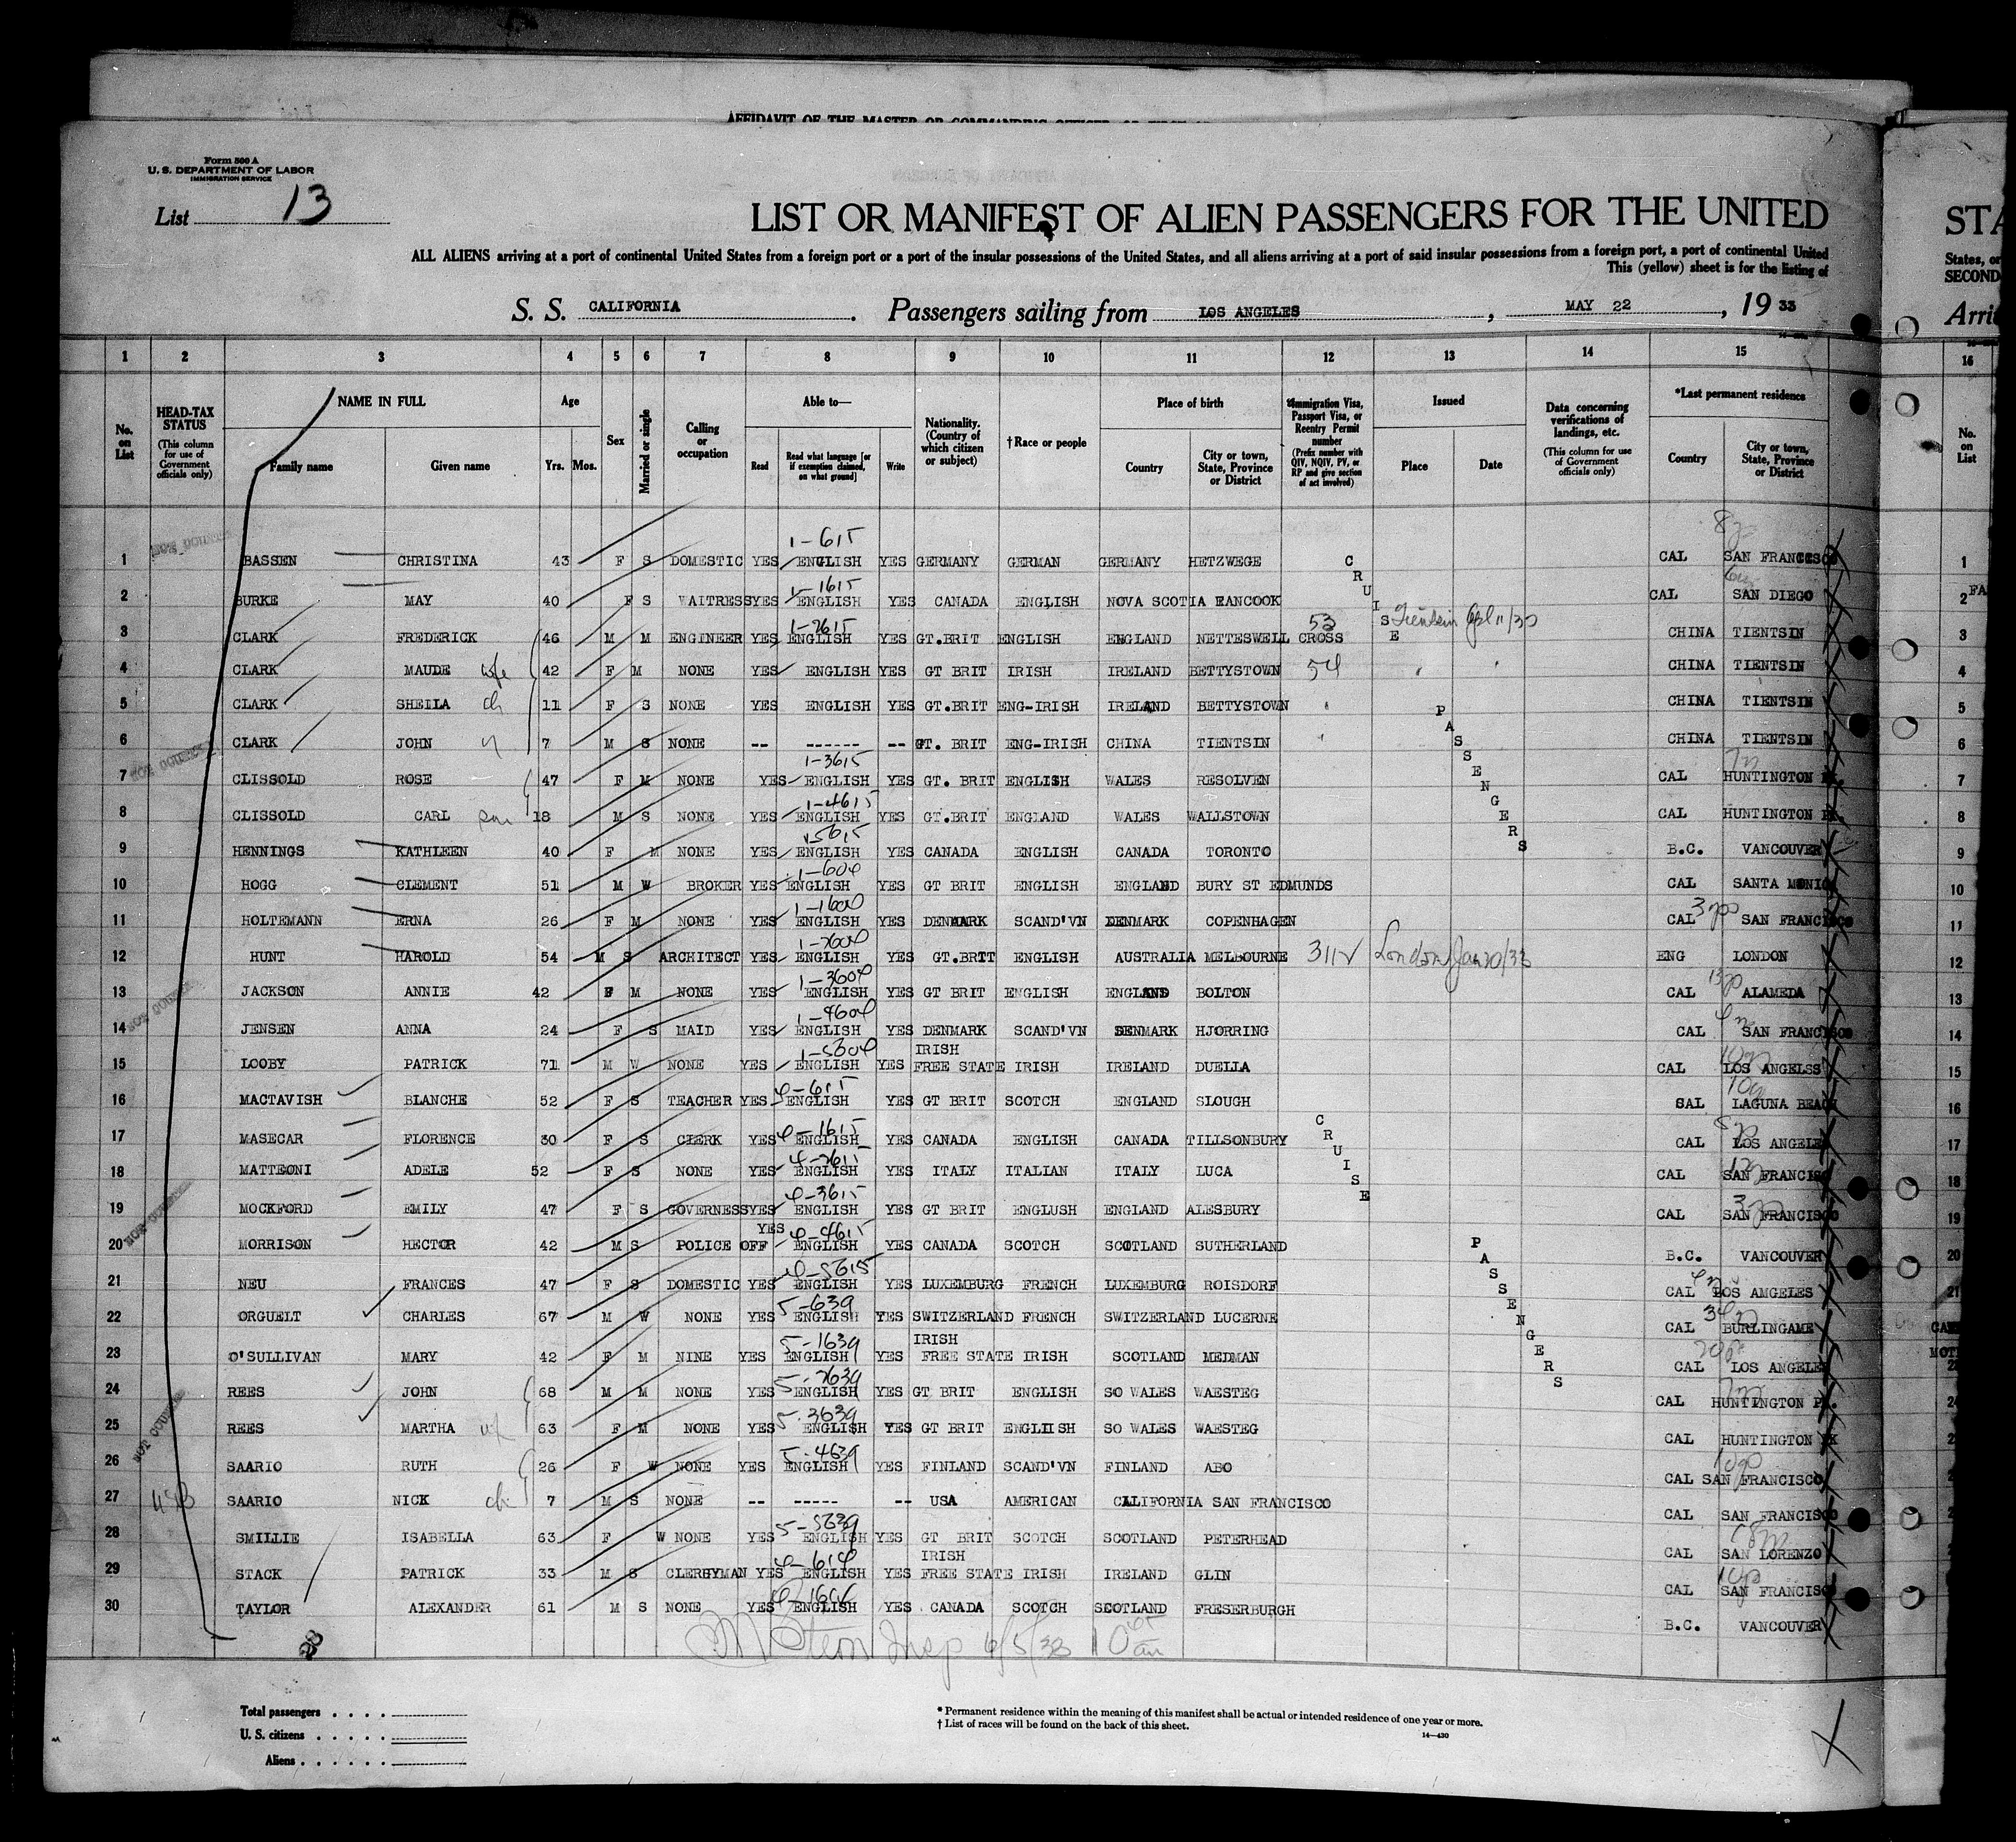 AFFIDAVIT OF THE MASTER OR COMMANDING OFFICER, OR FIRST
Form 500 A
U. S. DEPARTMENT OF LABOR
IMMIGRATION SERVICE
List 13
LIST OR MANIFEST OF ALIEN PASSENGERS FOR THE UNITED
STA
ALL ALIENS arriving at a port of continental United States from a foreign port or a port of the insular possessions of the United States, and all aliens arriving at a port of said insular possessions from a foreign port, a port of continental United
States, or
This (yellow) sheet is for the listing of
SECOND
S. S. CALIFORNIA. Passengers sailing from LOS ANGELES, MAY 22, 19 33
Arri
1 2 3 4 5 6 7 8 9 10 11 12 13 14 15 16
No. on List
HEAD-TAX STATUS (This column for use of Government officials only)
NAME IN FULL
Family name
Given name
Age
Yrs. Mos.
Sex
Married or single
Calling or occupation
Able to—
Read
Read what language [or if exemption claimed, on what ground]
Write
Nationality. (Country of which citizen or subject)
†Race or people
Place of birth
Country
City or town, State, Province or District
Immigration Visa, Passport Visa, or Reentry Permit number (Prefix number with QIV, NQIV, PV, or RP and give section of act involved)
Issued
Place
Date
Data concerning verifications of landings, etc. (This column for use of Government officials only)
*Last permanent residence
Country
City or town, State, Province or District
No. on List
1-615
1 BASSEN CHRISTINA 43 F S DOMESTIC YES ENGLISH YES GERMANY GERMAN GERMANY HETZWEGE CAL SAN FRANCISCO 1
1-1615
2 BURKE MAY 40 F S WAITRESS YES ENGLISH YES CANADA ENGLISH NOVA SCOTIA HANCOOK CAL SAN DIEGO 2
1-2615
3 CLARK FREDERICK 46 M M ENGINEER YES ENGLISH YES GT.BRIT ENGLISH ENGLAND NETTESWELL CROSS 53 Tientsin CHINA TIENTSIN 3
4 CLARK MAUDE wife 42 F M NONE YES ENGLISH YES GT BRIT IRISH IRELAND BETTYSTOWN 54 CHINA TIENTSIN 4
5 CLARK SHEILA ch 11 F S NONE YES ENGLISH YES GT.BRIT ENG-IRISH IRELAND BETTYSTOWN CHINA TIENTSIN 5
6 CLARK JOHN 7 M S NONE -- ------ -- GT. BRIT ENG-IRISH CHINA TIENTSIN CHINA TIENTSIN 6
1-3615
7 CLISSOLD ROSE 47 F M NONE YES ENGLISH YES GT. BRIT ENGLISH WALES RESOLVEN CAL HUNTINGTON PK. 7
1-4615
8 CLISSOLD CARL son 18 M S NONE YES ENGLISH YES GT.BRIT ENGLAND WALES WALLSTOWN CAL HUNTINGTON PK. 8
1-5615
9 HENNINGS KATHLEEN 40 F M NONE YES ENGLISH YES CANADA ENGLISH CANADA TORONTO B.C. VANCOUVER 9
1-604
10 HOGG CLEMENT 51 M W BROKER YES ENGLISH YES GT BRIT ENGLISH ENGLAND BURY ST EDMUNDS CAL SANTA MONICA 10
1-1604
11 HOLTEMANN ERNA 26 F M NONE YES ENGLISH YES DENMARK SCAND'VN DENMARK COPENHAGEN CAL SAN FRANCISCO 11
1-2604
12 HUNT HAROLD 54 M S ARCHITECT YES ENGLISH YES GT.BRIT ENGLISH AUSTRALIA MELBOURNE 3112 London ENG LONDON 12
1-3604
13 JACKSON ANNIE 42 F M NONE YES ENGLISH YES GT BRIT ENGLISH ENGLAND BOLTON CAL ALAMEDA 13
1-4604
14 JENSEN ANNA 24 F S MAID YES ENGLISH YES DENMARK SCAND'VN DENMARK HJORRING CAL SAN FRANCISCO 14
1-5604
15 LOOBY PATRICK 71 M W NONE YES ENGLISH YES IRISH FREE STATE IRISH IRELAND DUELLA CAL LOS ANGELSS 15
4-615
16 MACTAVISH BLANCHE 52 F S TEACHER YES ENGLISH YES GT BRIT SCOTCH ENGLAND SLOUGH SAL LAGUNA BEACH 16
4-1615
17 MASECAR FLORENCE 30 F S CLERK YES ENGLISH YES CANADA ENGLISH CANADA TILLSONBURY CAL LOS ANGELE 17
4-2615
18 MATTEONI ADELE 52 F S NONE YES ENGLISH YES ITALY ITALIAN ITALY LUCA CAL SAN FRANCISC 18
4-3615
19 MOCKFORD EMILY 47 F S GOVERNESS YES ENGLISH YES GT BRIT ENGLUSH ENGLAND ALESBURY CAL SAN FRANCISCO 19
4-4615
20 MORRISON HECTOR 42 M S POLICE OFF YES ENGLISH YES CANADA SCOTCH SCOTLAND SUTHERLAND B.C. VANCOUVER 20
4-5615
21 NEU FRANCES 47 F S DOMESTIC YES ENGLISH YES LUXEMBURG FRENCH LUXEMBURG ROISDORF CAL LOS AMGELES 21
5-639
22 ORGUELT CHARLES 67 M W NONE YES ENGLISH YES SWITZERLAND FRENCH SWITZERLAND LUCERNE CAL BURLINGAME
5-1639
23 O'SULLIVAN MARY 42 F M NINE YES ENGLISH YES IRISH FREE STATE IRISH SCOTLAND MEDMAN CAL LOS ANGELE
5-2639
24 REES JOHN 68 M M NONE YES ENGLISH YES GT BRIT ENGLISH SO WALES WAESTEG CAL HUNTINGTON PK.
5-3639
25 REES MARTHA 63 F M NONE YES ENGLISH YES GT BRIT ENGLIISH SO WALES WAESTEG CAL HUNTINGTON PK
5-4639
26 SAARIO RUTH 26 F W NONE YES ENGLISH YES FINLAND SCAND'VN FINLAND ABO CAL SAN FRANCISCO
27 SAARIO NICK ch 7 M S NONE -- ----- -- USA AMERICAN CALIFORNIA SAN FRANCISCO CAL SAN FRANCISCO
5-5639
28 SMILLIE ISABELLA 63 F W NONE YES ENGLISH YES GT BRIT SCOTCH SCOTLAND PETERHEAD CAL SAN LORENZO
4-614
29 STACK PATRICK 33 M S CLERGYMAN YES ENGLISH YES IRISH FREE STATE IRISH IRELAND GLIN CAL SAN FRANCISC
30 TAYLOR ALEXANDER 61 M S NONE YES ENGLISH YES CANADA SCOTCH SCOTLAND FRESERBURGH B.C. VANCOUVER
CRUISE PASSENGERS
CRUISE PASSENGERS
Insp 6/5/33 10
Total passengers
U. S. citizens
Aliens
* Permanent residence within the meaning of this manifest shall be actual or intended residence of one year or more.
† List of races will be found on the back of this sheet.
14—430